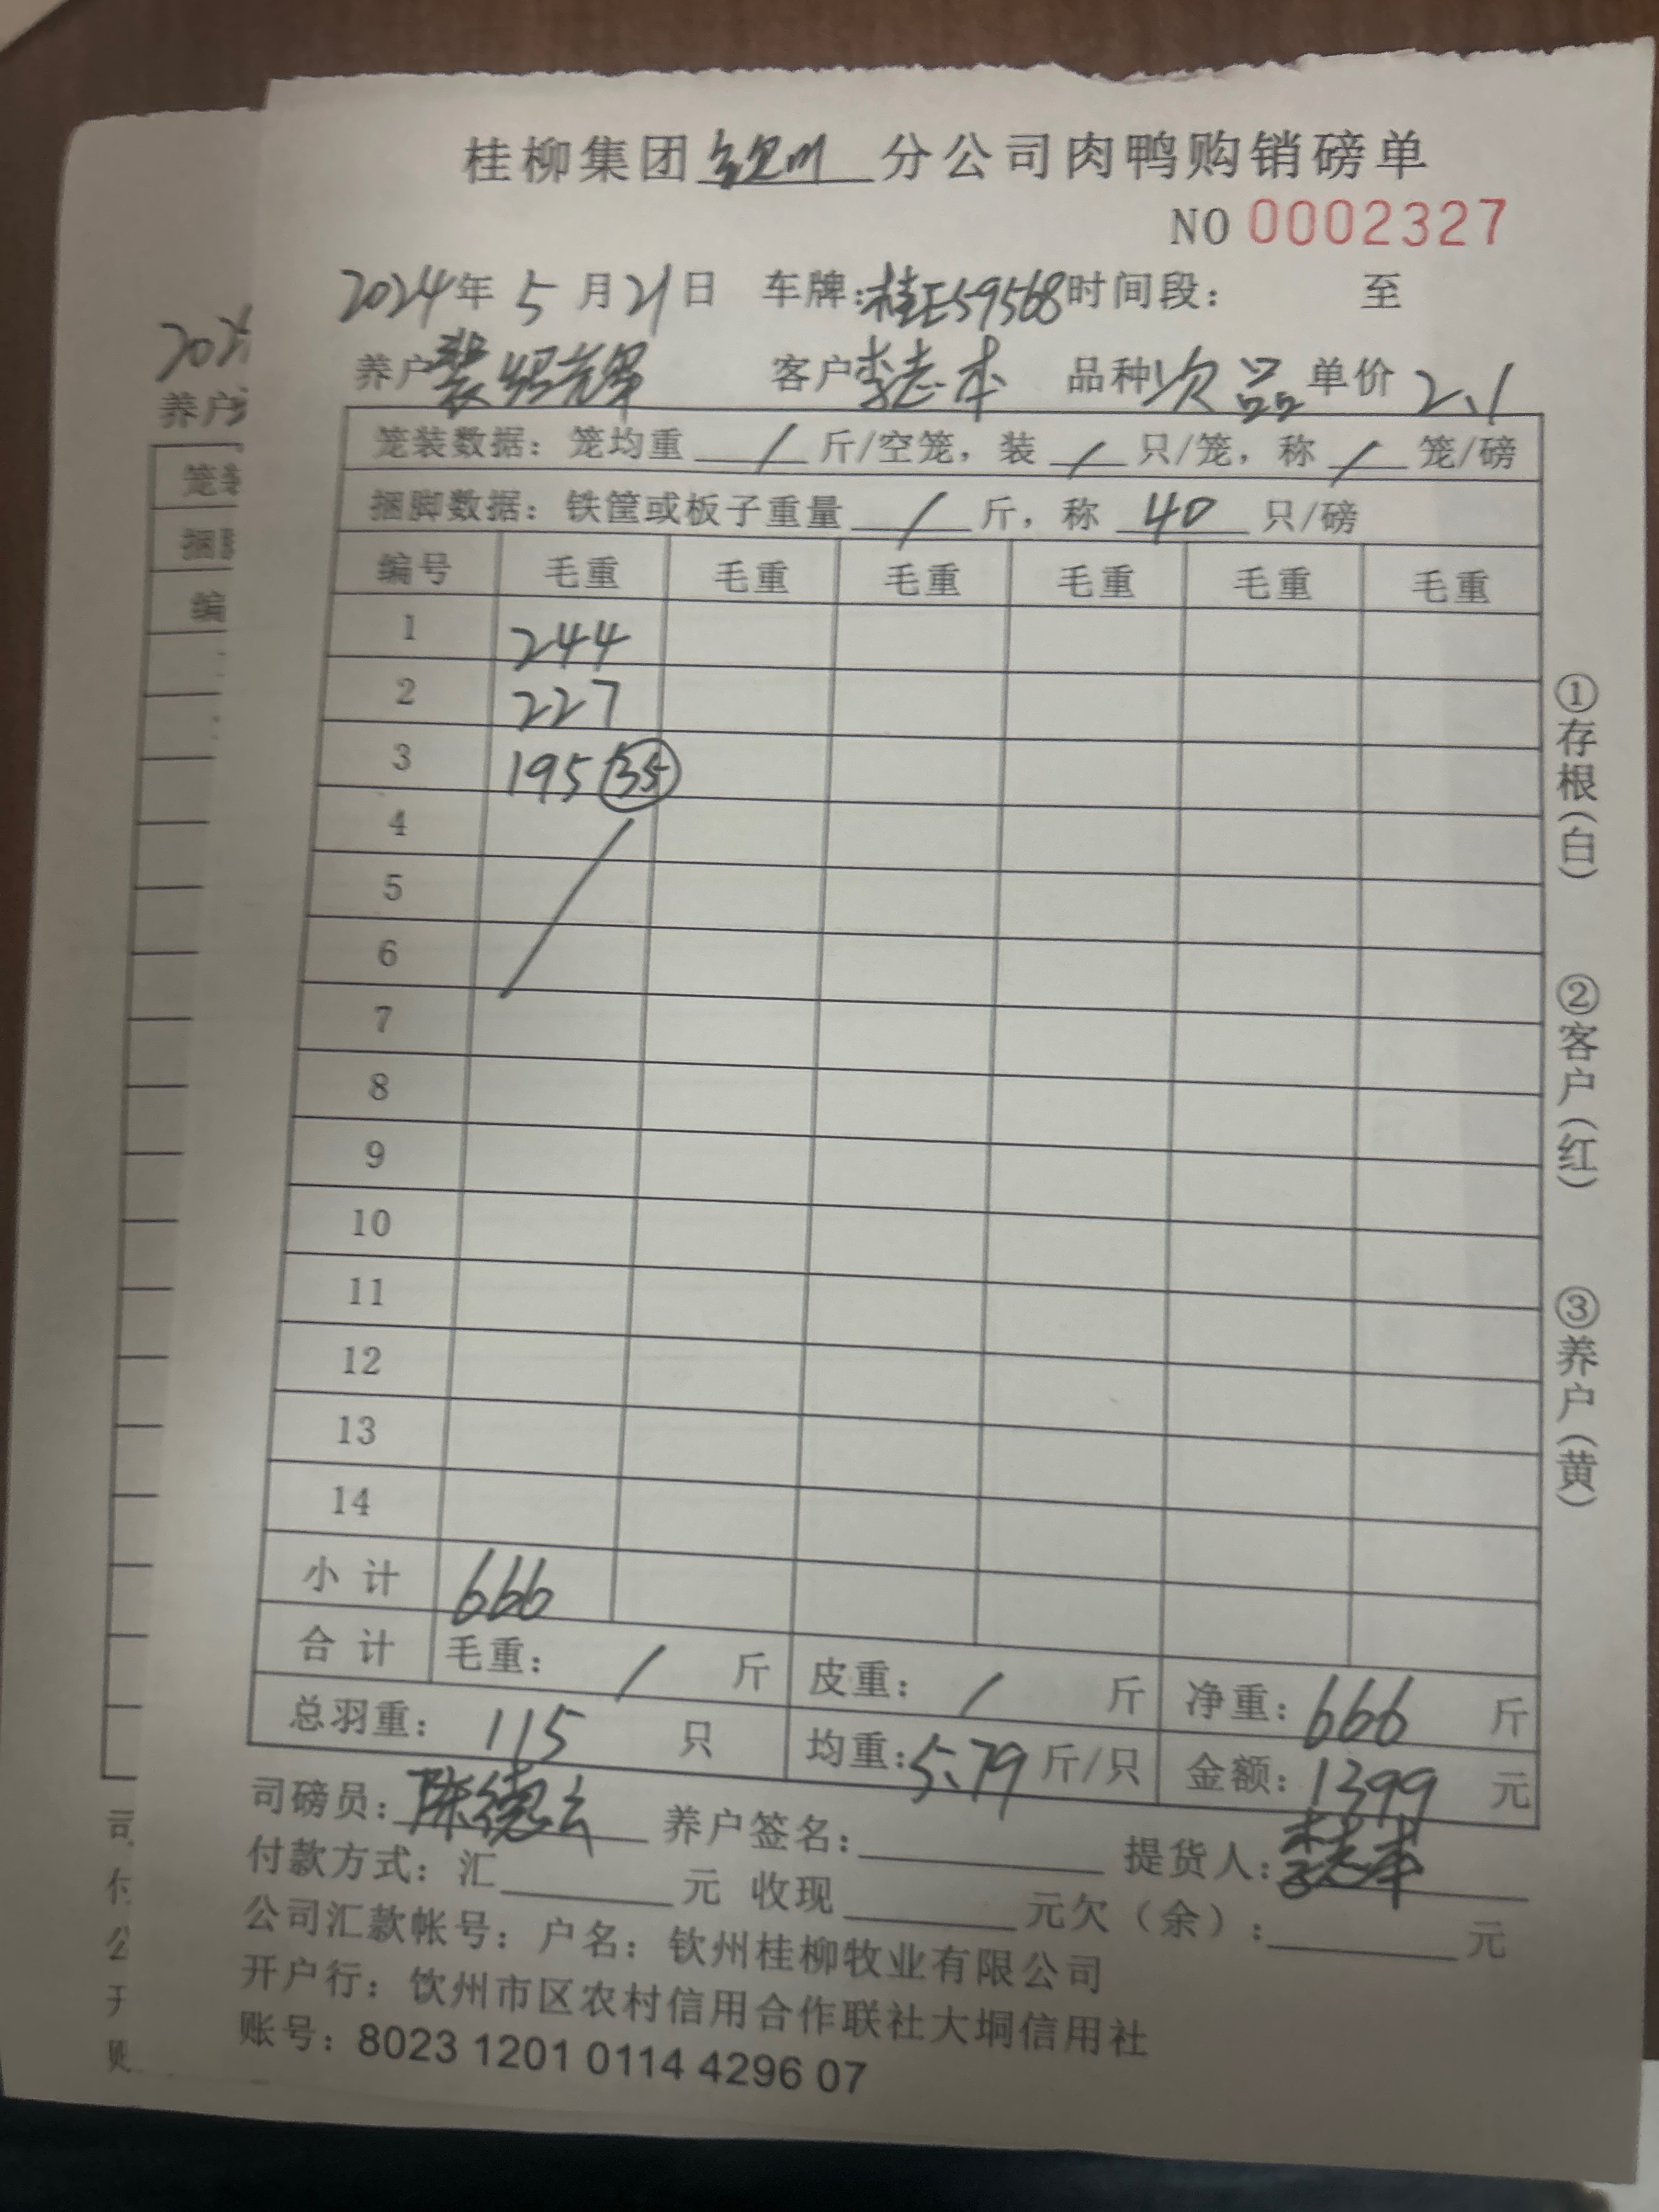 桂柳集团 钦州 分公司肉鸭购销磅单
NO 0002327
2024年 5 月 21 日 车牌:桂E59568 时间段: 至
养户 裴绍辉 客户 李志本 品种 次品 单价 2.1
笼装数据: 笼均重 / 斤/空笼, 装 / 只/笼, 称 / 笼/磅
捆脚数据: 铁筐或板子重量 / 斤, 称 40 只/磅
编号 毛重 毛重 毛重 毛重 毛重 毛重
1 244
2 227
3 195 35
4
5
6
7
8
9
10
11
12
13
14
小计 666
合计 毛重: / 斤 皮重: / 斤 净重: 666 斤
总羽重: 115 只 均重: 5.79 斤/只 金额: 1399 元
司磅员: 陈德云 养户签名: 提货人: 李志本
付款方式: 汇 元 收现 元欠(余): 元
公司汇款帐号: 户名: 钦州桂柳牧业有限公司
开户行: 饮州市区农村信用合作联社大垌信用社
账号: 8023 1201 0114 4296 07
①存根(白)
②客户(红)
③养户(黄)
202
养户
笼装
捆
编
司
付
公
开
账